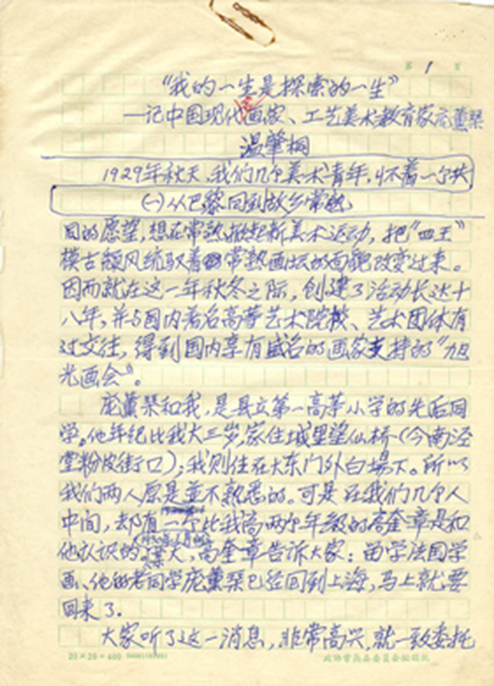 第 1 页
"我的一生是探索的一生"
—记中国现代画家、工艺美术教育家庞薰琹
温肇桐
1929年秋天,我们几个美术青年,怀着一个共
(一)从巴黎回到故乡常熟
同的愿望,想在常熟掀起新美术运动,把"四王"
模古颓风统驭着常熟画坛的面貌改变过来。
因而就在这一年秋冬之际,创建了活动长达十
八年,并与国内著名高等艺术院校、艺术团体有
过交往,得到国内享有盛名的画家支持的"旭
光画会"。
庞薰琹和我,是县立第一高等小学的先后同
学。他年纪比我大三岁,家住城里望仙桥(今南泾
堂粉皮街口);我则住在大东门外白场下。所以
我们两人原是並不熟悉的。可是在我们几个人
中间,却有一个比我高两个年级的高奎章是和
他认识的
天,高奎章告诉大家:留学法国学
画、他的老同学庞薰琹已经回到上海,马上就要
回来了.
大家听了这一消息,非常高兴,就一致委托
20×20=400